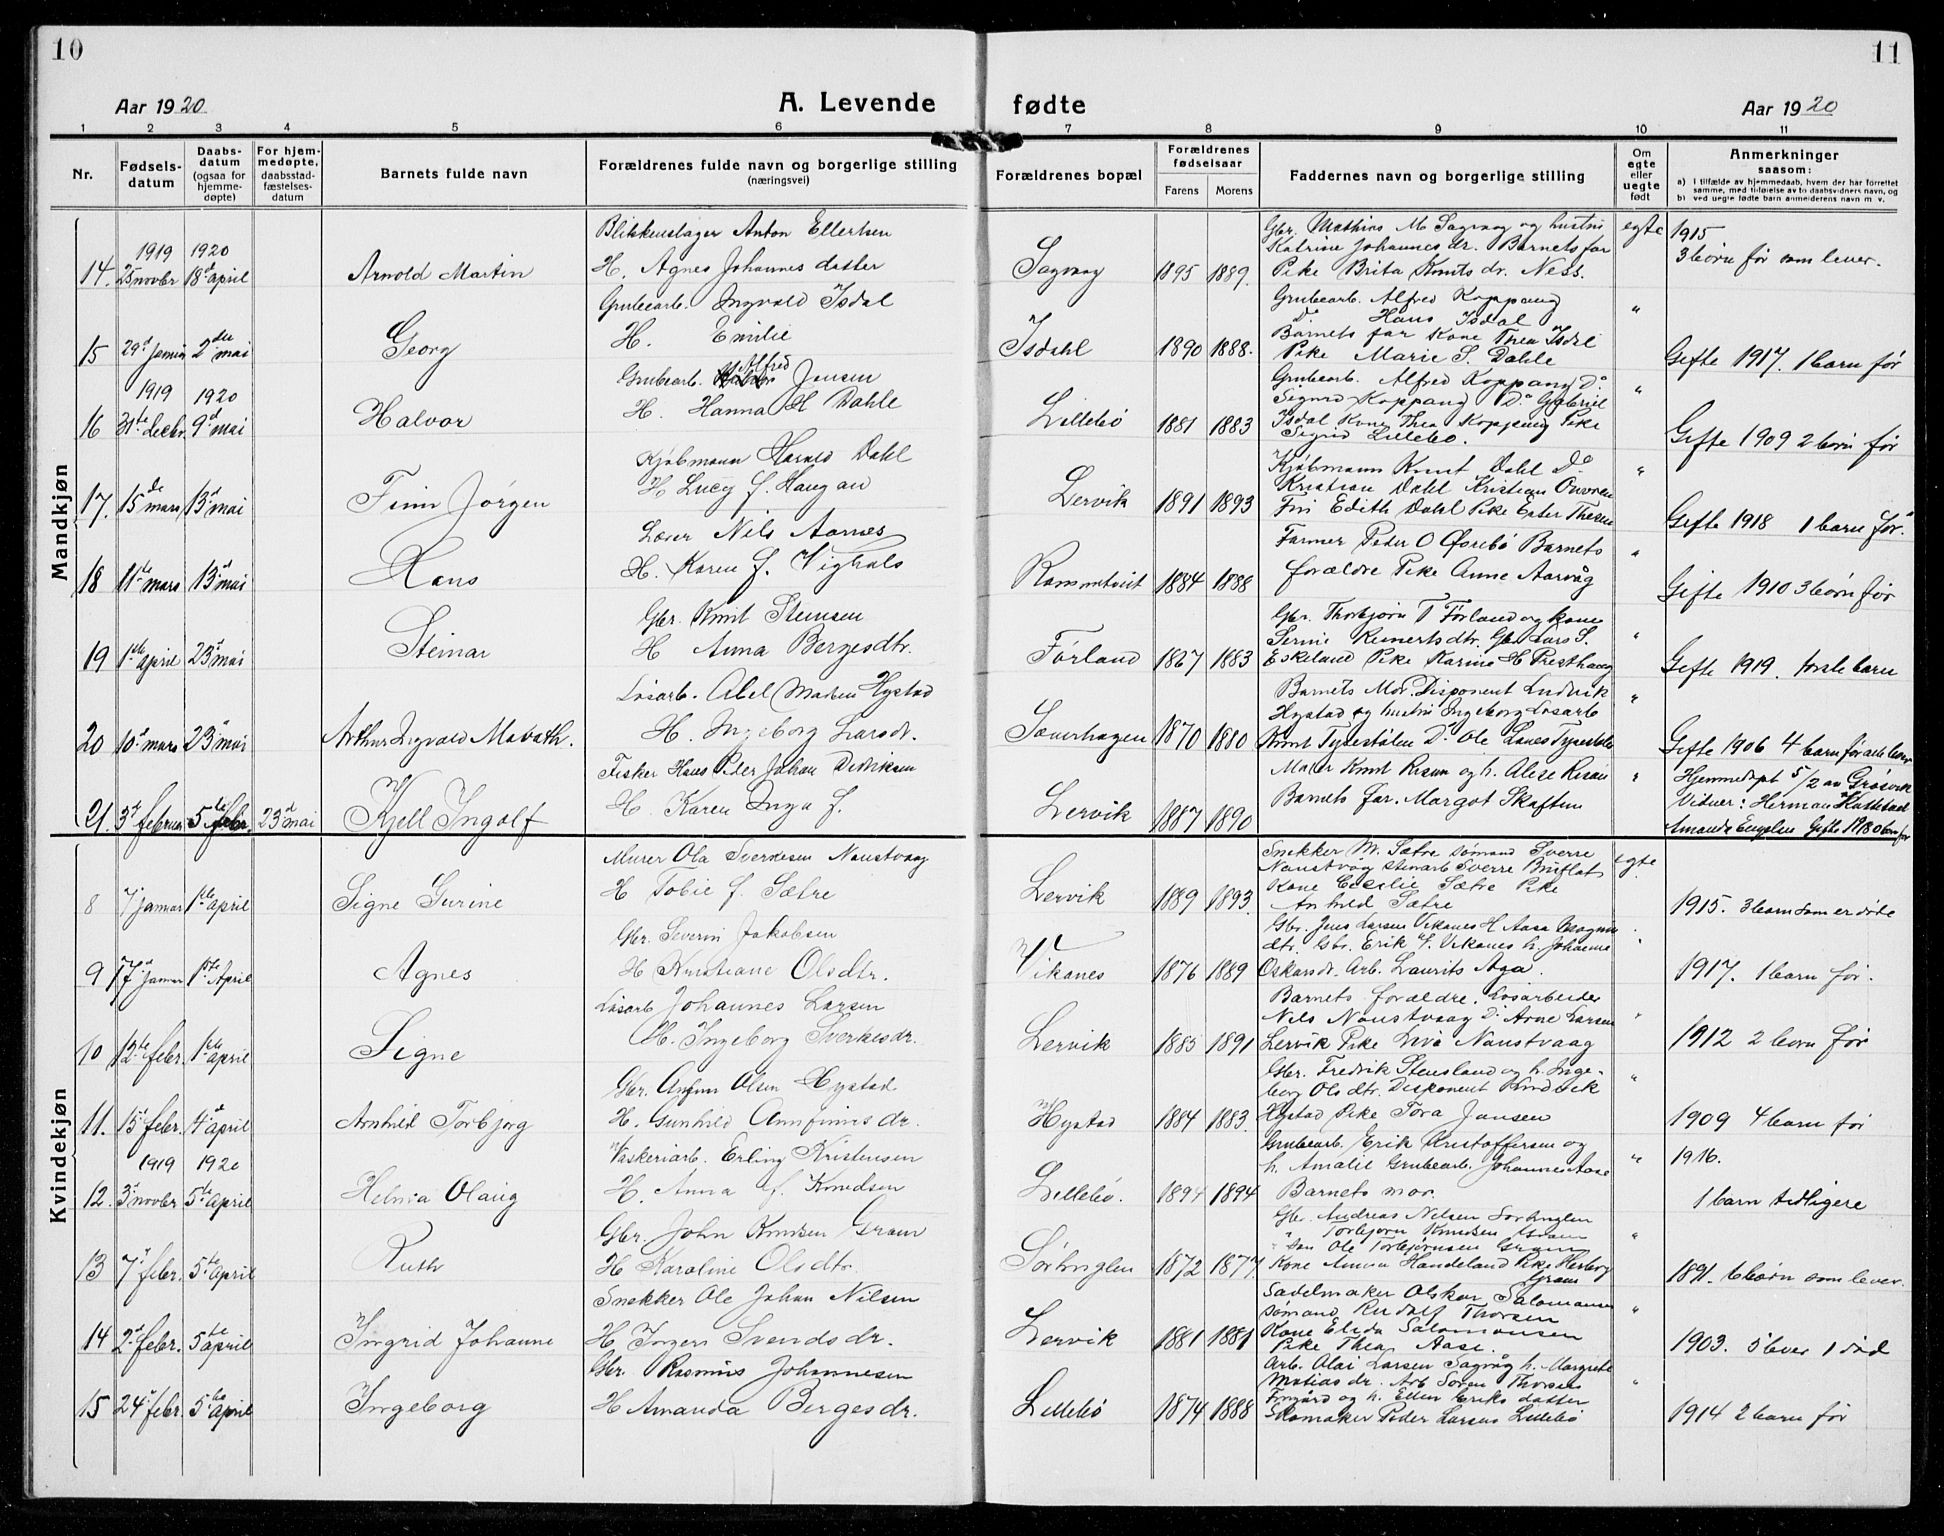 10
11
Aar 1920
A. Levende
fødte
Aar 1920
1 2 3 4 5 6 7 8 9 10 11
Nr.
Fødselsdatum
Daabsdatum (ogsaa for hjemmedøpte)
For hjemmedøpte, daabsstadfæstelsesdatum
Barnets fulde navn
Forældrenes fulde navn og borgerlige stilling
(næringsvei)
Forældrenes bopæl
Forældrenes fødselsaar
Farens
Morens
Faddernes navn og borgerlige stilling
Om egte eller uegte født
Anmerkninger
saasom:
a) I tilfælde av hjemmedaab, hvem der har forrettet samme, med tilføielse av to daabsvidners navn, og
b) ved uegte fødte barn anmelderens navn m. v.
Mandkjøn
1919 1920
14. 25 novbr 18d april
Arnold Martin
Blikkenslager Anton Ellertsen
H. Agnes Johannes datter
Sagvaag
1895 1889.
Gbr. Mathias M Sagvaag og hustru
Katrine Johannes dr. Barnets far
Pike Brita Knuts dr. Ness.
egte
1915
3 børn før som lever.
15 29d 2den mai
Georg
Grubearb. Ingvald Isdal
H. Emilie
Isdahl
1890 1888.
Grubearb. Alfred Koppang
Do Hans Isdal
Barnets far Kone Thea Isdal
Pike Marie S. Dahle
"
Gifte 1917. 1 barn før
1919 1920
16 31te decbr. 9d mai
Halvor
Grubearb. Alfred Jensen
H. Hanna H Dahle
Lillebø
1881 1883
Grubearb. Alfred Koppang Do
Sigurd Koppang Do Gabriel
Isdal Kone Thea Koppang Pike
Sigrid Lillebø.
"
Gifte 1909 2 børn før
17. 15de mars 13d mai
Finn Jørgen
Kjøbmann Harald Dahl
H Lucy f. Haugan
Lervik
1891 1893
Kjøbmann Knut Dahl Do
Kristian Dahl Kristian
Fru Edith Dahl Pike Ester
"
Gifte 1918 1 barn før.
18 11te mars 13d mai
Hans
Lærer Nils Aarnes
H. Karen f. Vighals
1884 1888
Farmer Peder O Øvrebø Barnets
forældre Pike Anne Aarvåg
"
Gifte 1910 3 børn før
19 1ste april 23d mai
Steinar
Gbr. Knut Steinsen
H Anna Bergesdtr.
Førland
1867 1883
Gbr. Thorbjørn T Førland og kone
Serine Reinertsdtr. Gbr Lars S.
Eskeland Pike Karine H Presthaug
"
Gifte 1919. første barn
20 10d mars 23d mai
Arthur Ingvald Mabath.
Løsarb. Abel Hystad
H. Ingeborg Larsdr.
1870 1880
Barnets Mor. Disponent Ludvik
Hystad og hustru Ingeborg Løsarb
Knut Tysestølen Do Ole
"
Gifte 1906 4 barn før
21. 3d februar 5te febr. 23d mai
Kjell Ingolf
Fisker Hans Peder Johan Didriksen
H. Karen Inga f.
Lervik
1887 1890
Maler Knut Risan og h. Alise Risan
Barnets far. Margot Skaften
"
Hjemmedøpt 5/2 av Grøsvik
Vidner: Herman
Amanda Engelsen Gifte 1918
Kvindekjøn
8 7 januar 1ste april
Signe Gurine
Murer Ola Sverresen Naustvaag
H Tobie f. Sætre
Lervik
1889 1893.
Snekker M. Sætre sømand Sverre
Naustvåg stenarb Sverre
Kone Cecelie Sætre Pike
Anhild Sætre
egte.
1915. 3 barn som er døde
9 17d januar 1ste April
Agnes
Gbr. Severin Jakobsen
H Kristiane Olsdtr.
Vikanes
1876 1889
Gbr. Jens Larsen Vikanes H Aasa Magnus
dtr. Gbr. Erik S. Vikanes h. Johanne
Oskarsdr. Arb. Laurits Aga.
1917. 1 barn før.
10 12te febr. 1ste april
Signe
Løsarb Johannes Larsen
H. Ingeborg Sverkesdr.
Lervik
1885 1891
Barnets forældre. Løsarbeider
Nils Naustvaag Do Arne Larsen
Lervik Pike Livø Naustvaag
"
1912 2 børn før
11. 15d febr. 4d april
Arnhild Torbjørg
Gbr. Anfinn Olsen Hystad
H. Gunhild Annfinns dr.
Hystad
1884 1883.
Gbr. Fredrik Stensland og h. Inge-
borg Olsdtr. Disponent Ludvik
Hystad Pike Tora Jansen
"
1909 4 barn før
1919 1920
12. 3d novbr 5te april
Helma Olaug
Vaskeriarb. Erling Kristensen
H. Anna f. Knudsen
Lillebø.
1894 1894
Grubearb. Erik Kristoffersen og
h. Amalie Grubearb. Johannes Aase
Barnets mor.
"
1916.
1 barn tidligere
13 7d febr. 5te april
Ruth
Gbr. John Knudsen Gram
H Karoline Olsdtr.
Sørhuglen
1872 1877.
Gbr. Andreas Nilsen Sørhuglen
" Torbjørn Knudsen Gram
" Ole Torbjørnsen Gram
Kone Anna Handeland Pike Herborg
Gram
"
1891. 6 børn som lever.
14 2d febr. 5te april
Ingrid Johanne
Snekker Ole Johan Nilsen
H Inger Svendsdr.
Lervik
1881 1881
Sadelmaker Olskar Salomonsen
sømand Rudolf Thorsen
Kone Elida Salomonsen
Pike Thea Aase.
"
1903. 5 lever 1 død
15 24d febr. 5te april
Ingeborg
Gbr. Rasmus Johannesen
H Amanda Bergesdr.
Lillebø
1874 1888
Arb. Olai Larsen Sagvåg h. Margrete
Matiasdr. Arb Søren Thorsen
og h. Ellen Eriks datter
Skomaker Peder Larsen Lillebø
"
1914 2 barn før